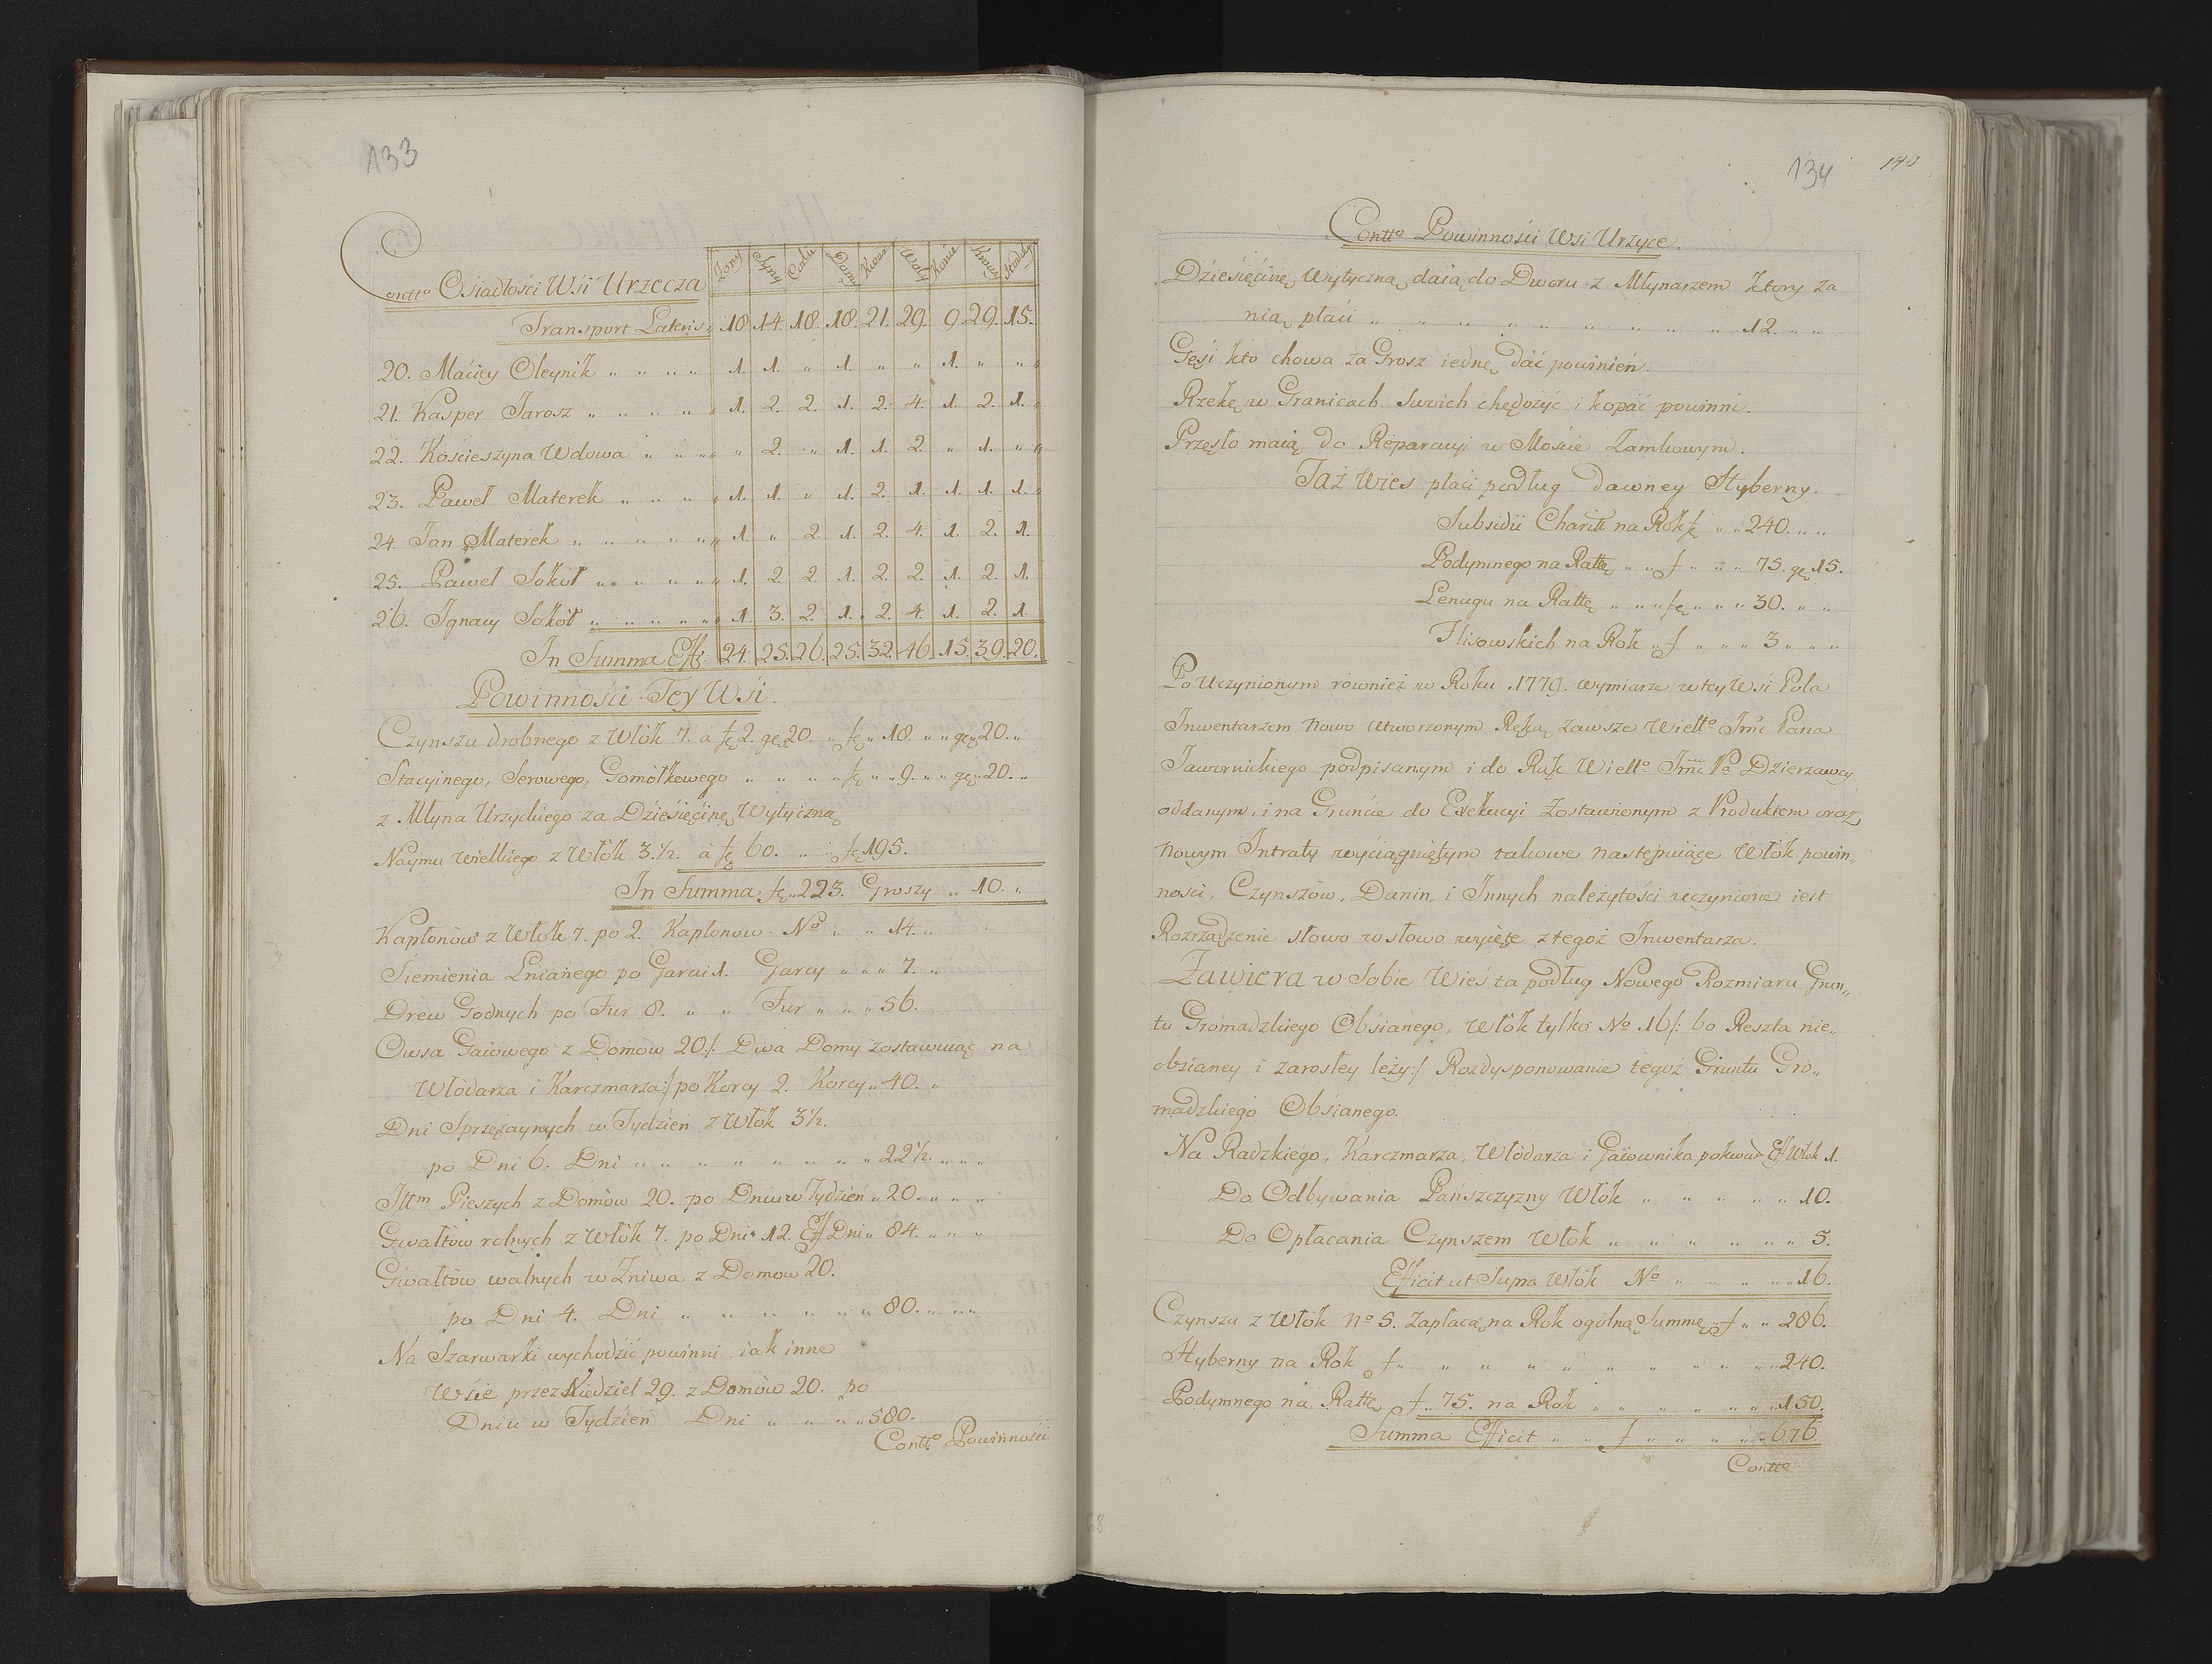 133
Contto Osiadłości Wsi Urzecza Żony Syny Córki Domy Kwar Woły Konie Krowy
Transport Lateris „ 18. 14. 18. 18. 21. 29. 9. 29. 15.
20. Maciey Oleynik „ „ „ „ 1. 1. „ 1. „ „ 1. „ „
21. Kasper Jarosz „ „ „ „ 1. 2. 2. 1. 2. 4. 1. 2. 1.
22. Kościeszyna Wdowa „ „ „ „ 2. „ 1. 1. 2. „ 1. „
23. Paweł Materek „ „ „ „ 1. 1. „ 1. 2. 1. 1. 1. 1.
24. Jan Materek „ „ „ „ „ 1. „ 2. 1. 2. 4. 1. 2. 1.
25. Paweł Sokół „ „ „ „ „ 1. 2. 2. 1. 2. 2. 1. 2. 1.
26. Ignacy Sokół „ „ „ „ „ 1. 3. 2. 1. 2. 4. 1. 2. 1
In Summa Eff: 24. 25. 26. 25. 32. 46. 15. 39. 20.
Powinności Tey Wsi.
Czynszu drobnego z Włók 7. a fę 2. gę 20. „ fę „ 18 „ „ gę „ 20. „
Stacyinego, Serowego, Gomółkowego „ „ „ „ fę „ „ 9. „ „ gę „ 20. „
z Młyna Urzyckiego za Dziesięcinę Wytyczną
Naymu wielkiego z Włók 3.½. à fę 60. „ fę 195.
In Summa fę „ 223. Groszy „ 10. „
Kapłonów z Włók 7. po 2. Kapłonow No „ „ 14. „
Siemienia Lnianego po Garcu 1. Garcy „ „ „ 7. „
Drew Godnych po Fur 8. „ „ Fur „ „ „ 56.
Owsa Gaiowego z Domow 20/: Dwa Domy zostawuiąc na
Włodarza i Karczmarza:/ po Korcy 2. Korcy „ 40. „
Dni Sprzężaynych w Tydzień z Włok 3½.
po Dni 6. Dni „ „ „ „ „ „ „ „ 22½. „ „ „
Ittm Pieszych z Domów 20. po Dniu w Tydzień „ 20. „ „ „
Gwałtów rolnych z Włók 7. po Dni 12. Eff Dni „ 84. „ „ „
Gwałtów walnych w Żniwa z Domow 20.
po Dni 4. Dni „ „ „ „ „ „ „ 80. „ „ „
Na Szarwarki wychodzić powinni iak inne
Wsie przez Niedziel 29. z Domów 20. po
Dniu w Tydzień Dni „ „ „ „ 580.
Contto Powinności
134 140
Contto Powinności Wsi Urzyce.
Dziesięcinę Wytyczną daią do Dworu z Młynarzem ktory za
nią płaci „ „ „ „ „ „ „ „ „ „ „ „ 12. „ „
Gęsi kto chowa za Grosz iednę dać powinien.
Rzekę w Granicach swoich chędożyć i kopać powinni.
Przęsło maią do Reparacyi w Moście Zamkowym.
Taż Wies płaci podług dawney Hyberny.
Subsidii Charitt na Rok fę „ „ 240. „ „
Podymnego na Rattę „ „ f „ „ „ 75. gę 15.
Lenugu na Rattę „ „ „ fę „ „ „ 30. „ „
Flisowskich na Rok „ f „ „ „ 3 „ „ „
Po Uczynionym również w Roku 1779. wymiarze w tey Wsi Pola
Inwentarzem nowo utworzonym Ręką zawsze Wiello Jmć Pana
Jawornickiego podpisanym i do Rąk Wiello Jmć Pa Dzierzawcy
oddanym, i na Gruncie do Exekucyi zostawionym z Produktem oraz
nowym Intraty wyciągniętym takowe następuiące Włók powin„
ności, Czynszów, Danin, i Innych należytości uczynione iest
Rozrządzenie słowo w słowo wyięte z tegoż Inwentarza.
Zawiera w Sobie Wieś ta podług Nowego Rozmiaru Grun„
tu Gromadzkiego Obsianego, Włók tylko No 16/: bo Reszta nie„
obsianey i zarosłey leży:/ Rozdysponowanie tegoż Gruntu Gro„
madzkiego Obsianego.
Na Radzkiego, Karczmarza, Włodarza i Gaiownika po kwad. Eff Włok 1.
Do Odbywania Pańszczyzny Włók „ „ „ „ „ 10.
Do Opłacania Czynszem Włók „ „ „ „ „ „ 5.
Efficit ut Supra Włók No „ „ „ „ „ 16.
Czynszu z Włók No 5. zapłacą na Rok ogólną Summę „ f „ „ 286.
Hyberny na Rok f „ „ „ „ „ „ „ „ „ „ „ 240.
Podymnego na Rattę f „ 75. na Rok „ „ „ „ „ „ „ 150.
Summa Efficit „ „ f „ „ „ „ „ 676.
Contto